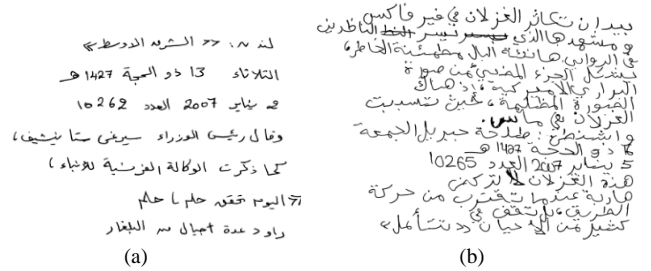 لندن: «الشرق الاوسط»
الثلاثاء 13 ذو الحجة 1427 هـ
2 يناير 2007 العدد 10262
وقال رئيس الوزراء سيرغي ستانيشيف،
كما ذكرت الوكالة الفرنسية للانباء،
«اليوم تحقق حلم يا حلم
راود عدة اجيال من البلغار
(a)
بيد ان تكاثر الغزلان في فيرفاكس
ومشهدها الذي يسر الناظرين
في الروابي هانئة البال مطمئنة الخاطر،
يشكل الجزء المضيئ من صورة
البراري الاميركية، اذ هناك
الصورة المظلمة، حين تسببت
الغزلان في
واشنطن: طلحة جبريل الجمعة
16 ذو الحجة 1427 هـ
5 يناير 2007 العدد 10265
هذه الغزلان لا تركض
هاربة عندما تقترب من حركة
الطريق، بل تقف في
كثير من الاحيان «تتأمل»
(b)